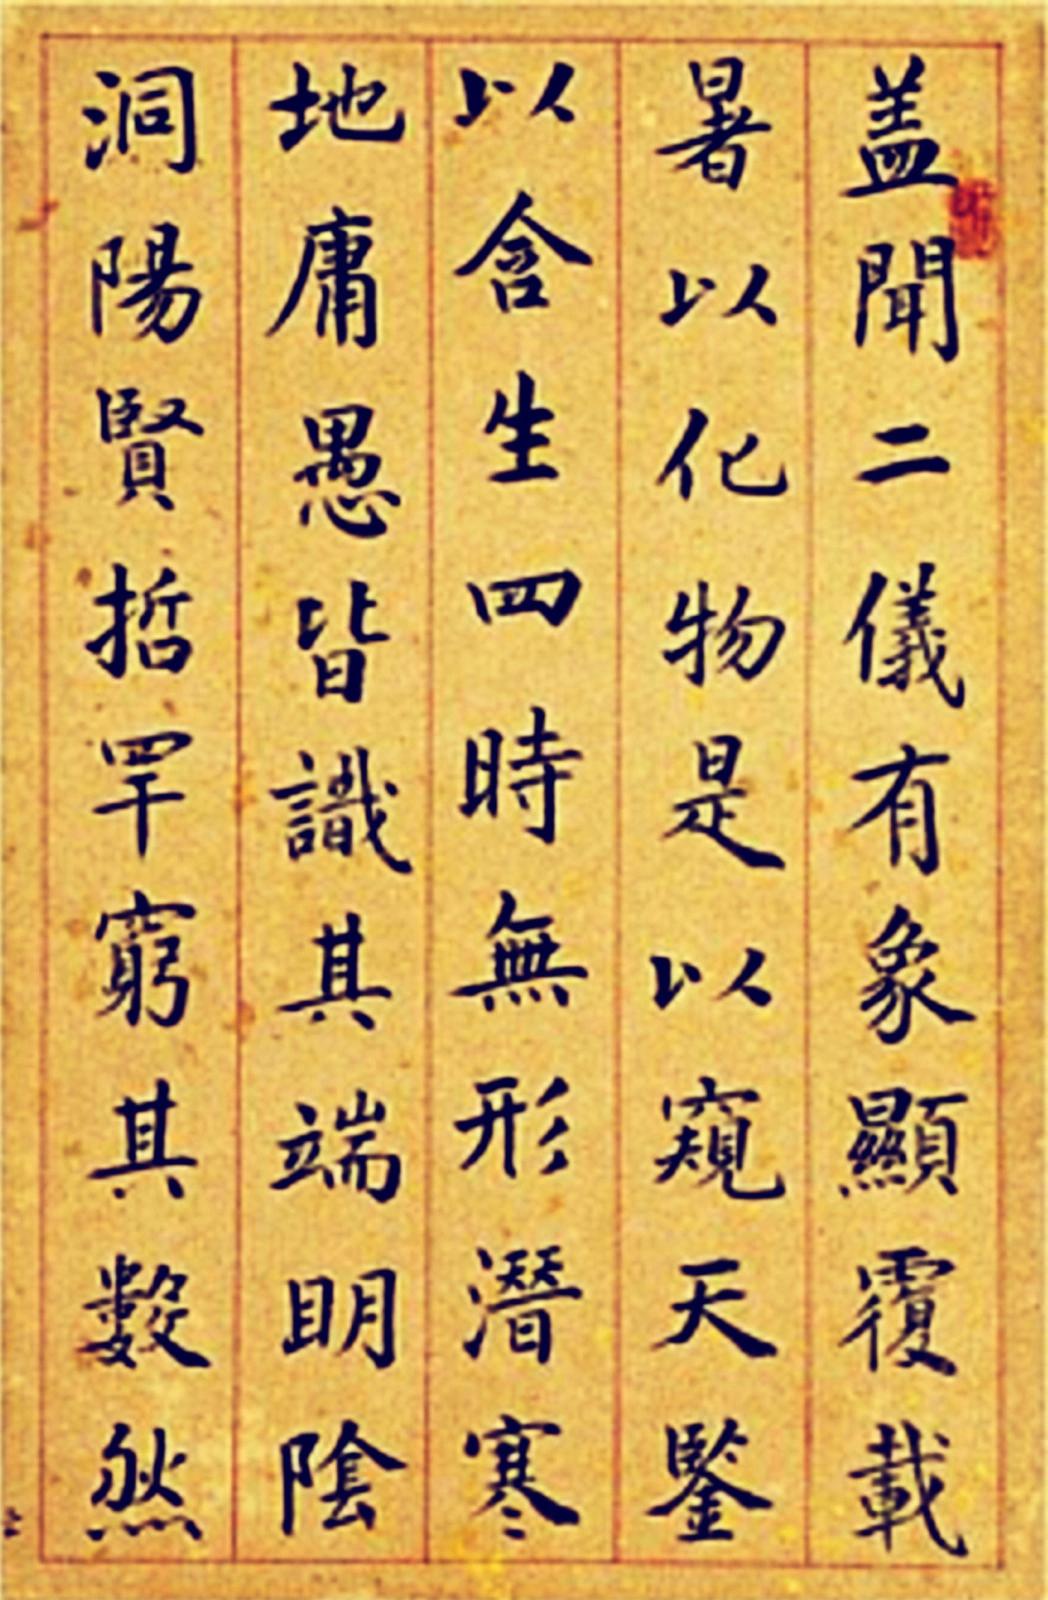 蓋聞二儀有象顯覆載
以含生四時無形潛寒
暑以化物是以窺天鑒
地庸愚皆識其端明陰
洞陽賢哲罕窮其數然